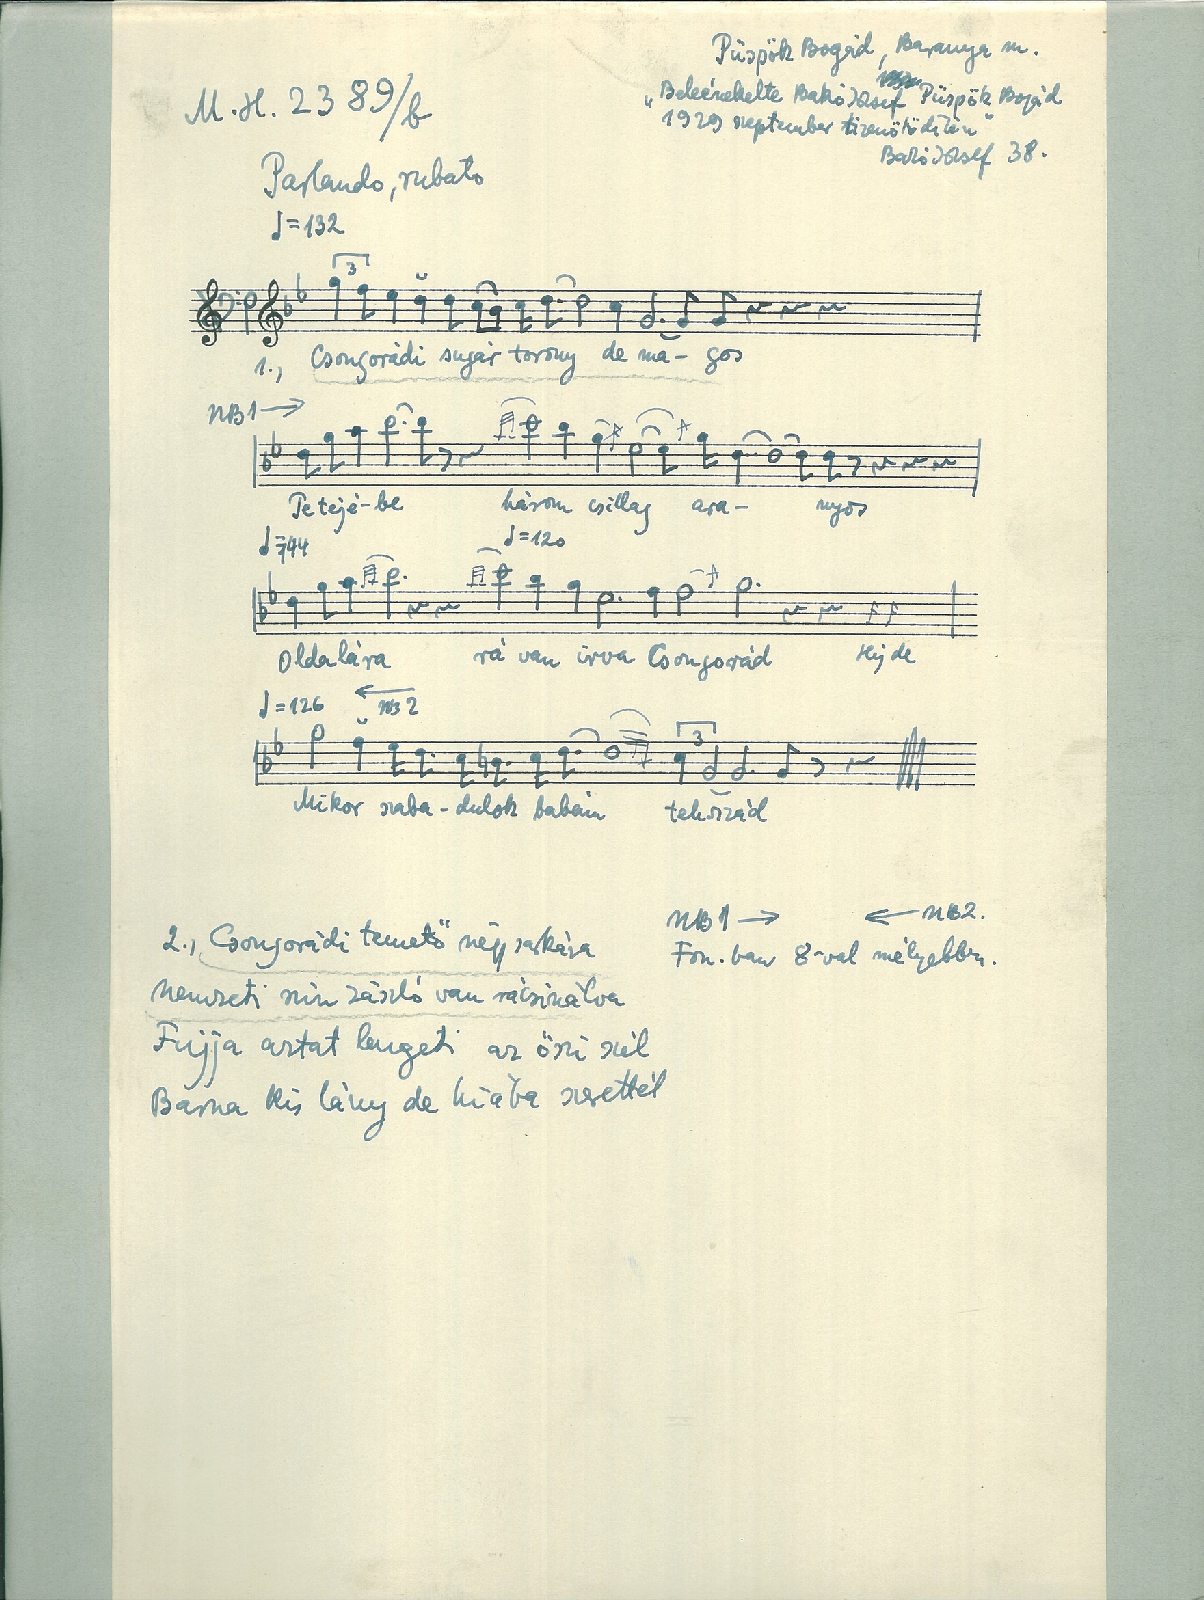 Püspök Bogád, Baranya m.
M.H. 2389/b
„Beleénekelte Bakó József Püspök Bogád
1929 szeptember tizenötödikén"
Bakó József 38.
Parlando, rubato
♩=132
3
1., Csongorádi sugár torony de ma- gos
NB1 →
Tetejé-be három csillag ara- nyos
♩=144 ♩=120
Oldalára rá van irva Csongorád Hijde
♩=126 ← NB2
3
Mikor szaba-dulok babám tehozzád
NB1 → ← NB2.
Fon.ban 8-val mélyebben.
2., Csongorádi temető négy sarkára
Nemzeti szin zászló van rácsinálva
Fujja aztat lengeti az őszi szél
Barna kis lány de hiába szerettél